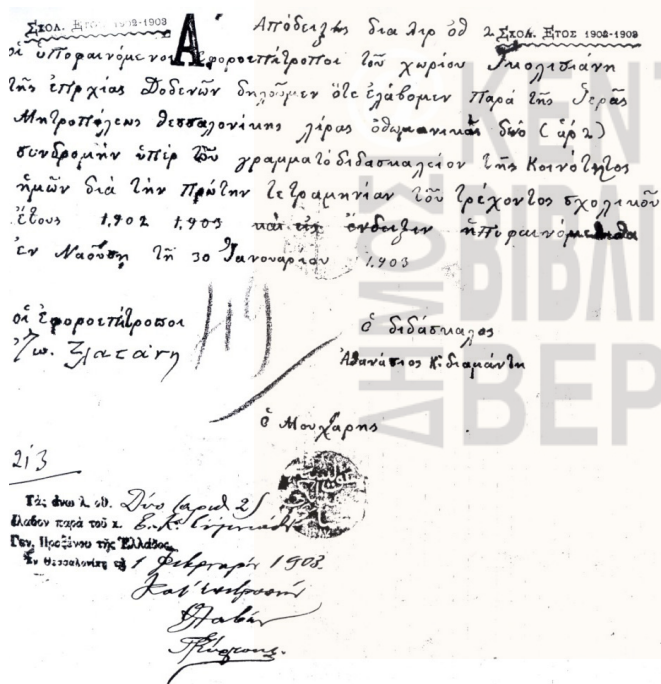 ΣΧΟΛ. ΕΤΟΣ 1902-1903
Α Απόδειξης δια λιρ οθ 2 ΣΧΟΛ. ΕΤΟΣ 1902-1903
οἱ ὑποφαινόμενοι Ἐφοροεπίτροποι τοῦ χωρίου
τῆς ἐπρχίας Βοδενῶν δηλοῦμεν ὅτε ἐλάβομεν παρὰ τῆς Ἱερᾶς
Μητροπόλεως Θεσσαλονίκης λίρας ὀθωμανικὰς δυὸ (ἀρ 2)
συνδρομὴν ὑπὲρ τοῦ γραμματοδιδασκαλείου τῆς Κοινότητος
ἡμῶν διὰ τὴν πρώτην τετραμηνίαν τοῦ τρέχοντος σχολικοῦ
ἔτους 1.902 1.903 καὶ εἰς ἔνδειξιν
ἐν Ναούσῃ τῇ 30 Ἰανουαρίου 1.903
οἱ Ἐφοροεπίτροποι
ὁ διδάσκαλος
Ἀθανάσιος Κ. διαμάντη
ὁ Μουχτάρης
213
Τὰς ἄνω λ. ὀθ. Δύο (αριθ 2)
ἔλαβον παρὰ τοῦ κ.
Γεν. Προξένου τῆς Ἑλλάδος
Ἐν Θεσσαλονίκῃ τῇ 1 Φεβρουαρ 1903
ΔΗΜΟΣ
ΚΕΝΤ
ΒΙΒΛΙ
ΒΕΡ